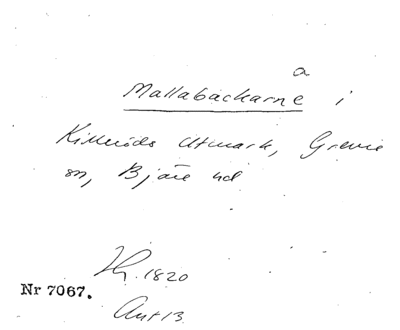 a
Mallabackarne i
Killeröds Utmark, Grevie
sn, Bjäre hd
1820
Nr 7067.
Ant 13